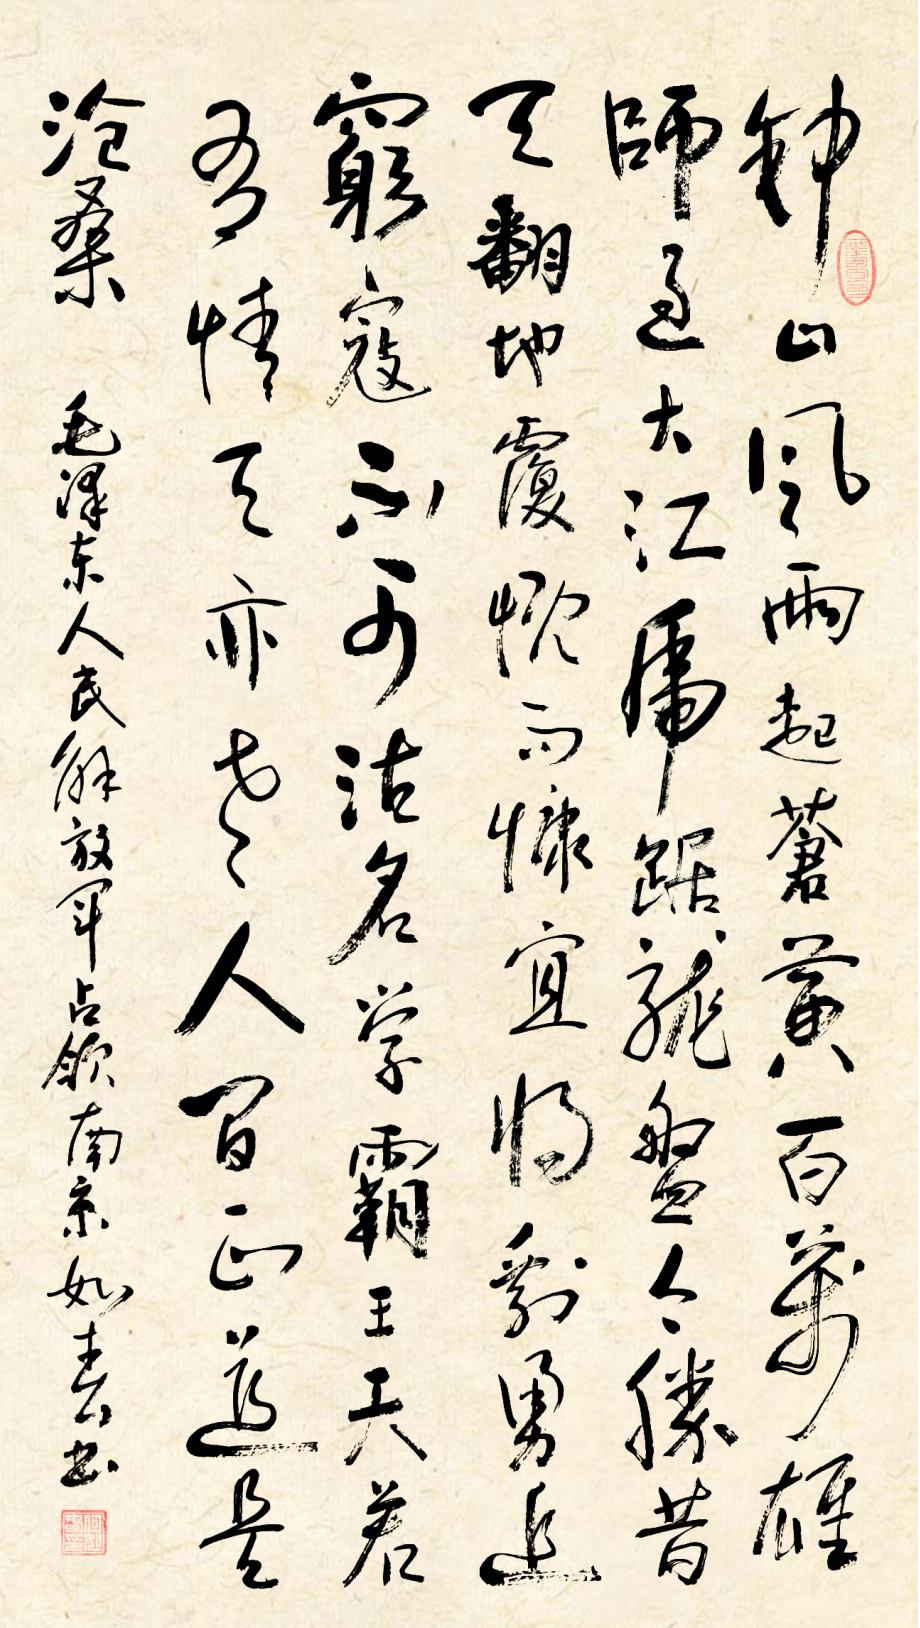 鈡山風雨起蒼黄百萬雄
師過大江虎踞龍盤今勝昔
天翻地覆慨而慷宜將剩勇追
窮寇不可沽名学霸王天若
有情天亦老人间正道是
沧桑 毛泽东人民解放军占领南京 如春书